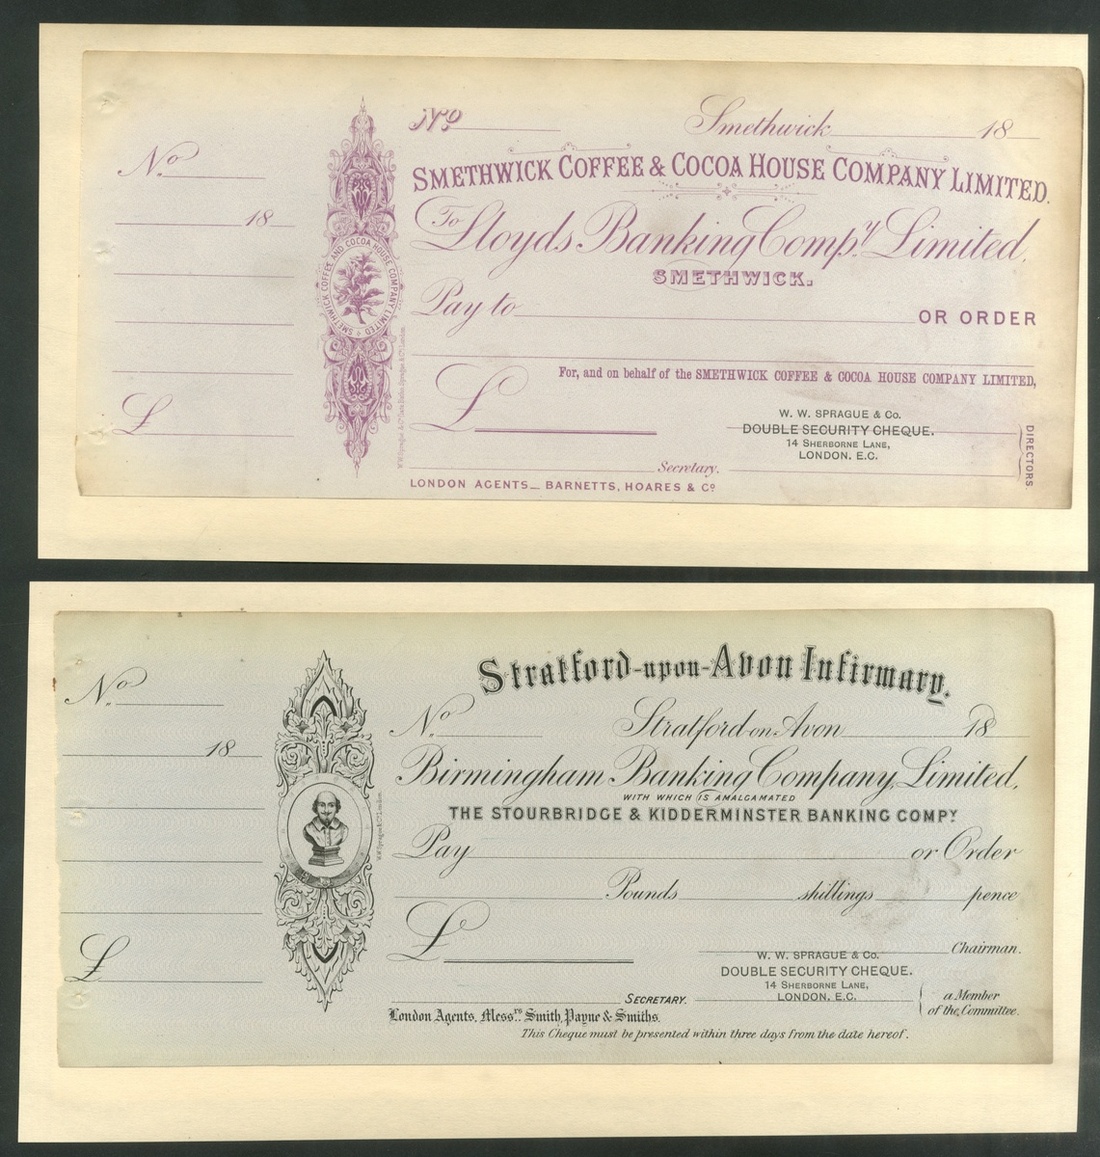 No
18
£
SMETHWICK COFFEE AND COCOA HOUSE COMPANY LIMITED
No Smethwick 18
SMETHWICK COFFEE & COCOA HOUSE COMPANY LIMITED.
To Lloyds Banking Compy. Limited.
SMETHWICK.
Pay to OR ORDER
For, and on behalf of the SMETHWICK COFFEE & COCOA HOUSE COMPANY LIMITED,
£
W. W. SPRAGUE & Co.
DOUBLE SECURITY CHEQUE.
14 SHERBORNE LANE,
LONDON. E.C.
DIRECTORS.
Secretary.
LONDON AGENTS_ BARNETTS, HOARES & Co
No
18
£
W.W. Sprague & Co. London.
Stratford-upon-Avon Infirmary.
No Stratford-on-Avon 18
Birmingham Banking Company, Limited.
WITH WHICH IS AMALGAMATED
THE STOURBRIDGE & KIDDERMINSTER BANKING COMPY.
Pay or Order
Pounds shillings pence
£
Chairman.
W. W. SPRAGUE & Co.
DOUBLE SECURITY CHEQUE.
14 SHERBORNE LANE,
LONDON, E.C.
SECRETARY. a Member
of the Committee.
London Agents, Messrs. Smith, Payne & Smiths.
This Cheque must be presented within three days from the date hereof.